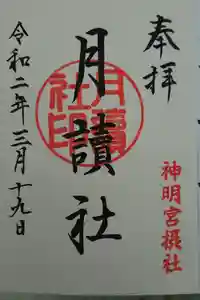 奉拝
神明宮摂社
月讀社
月讀社印
令和二年三月十九日